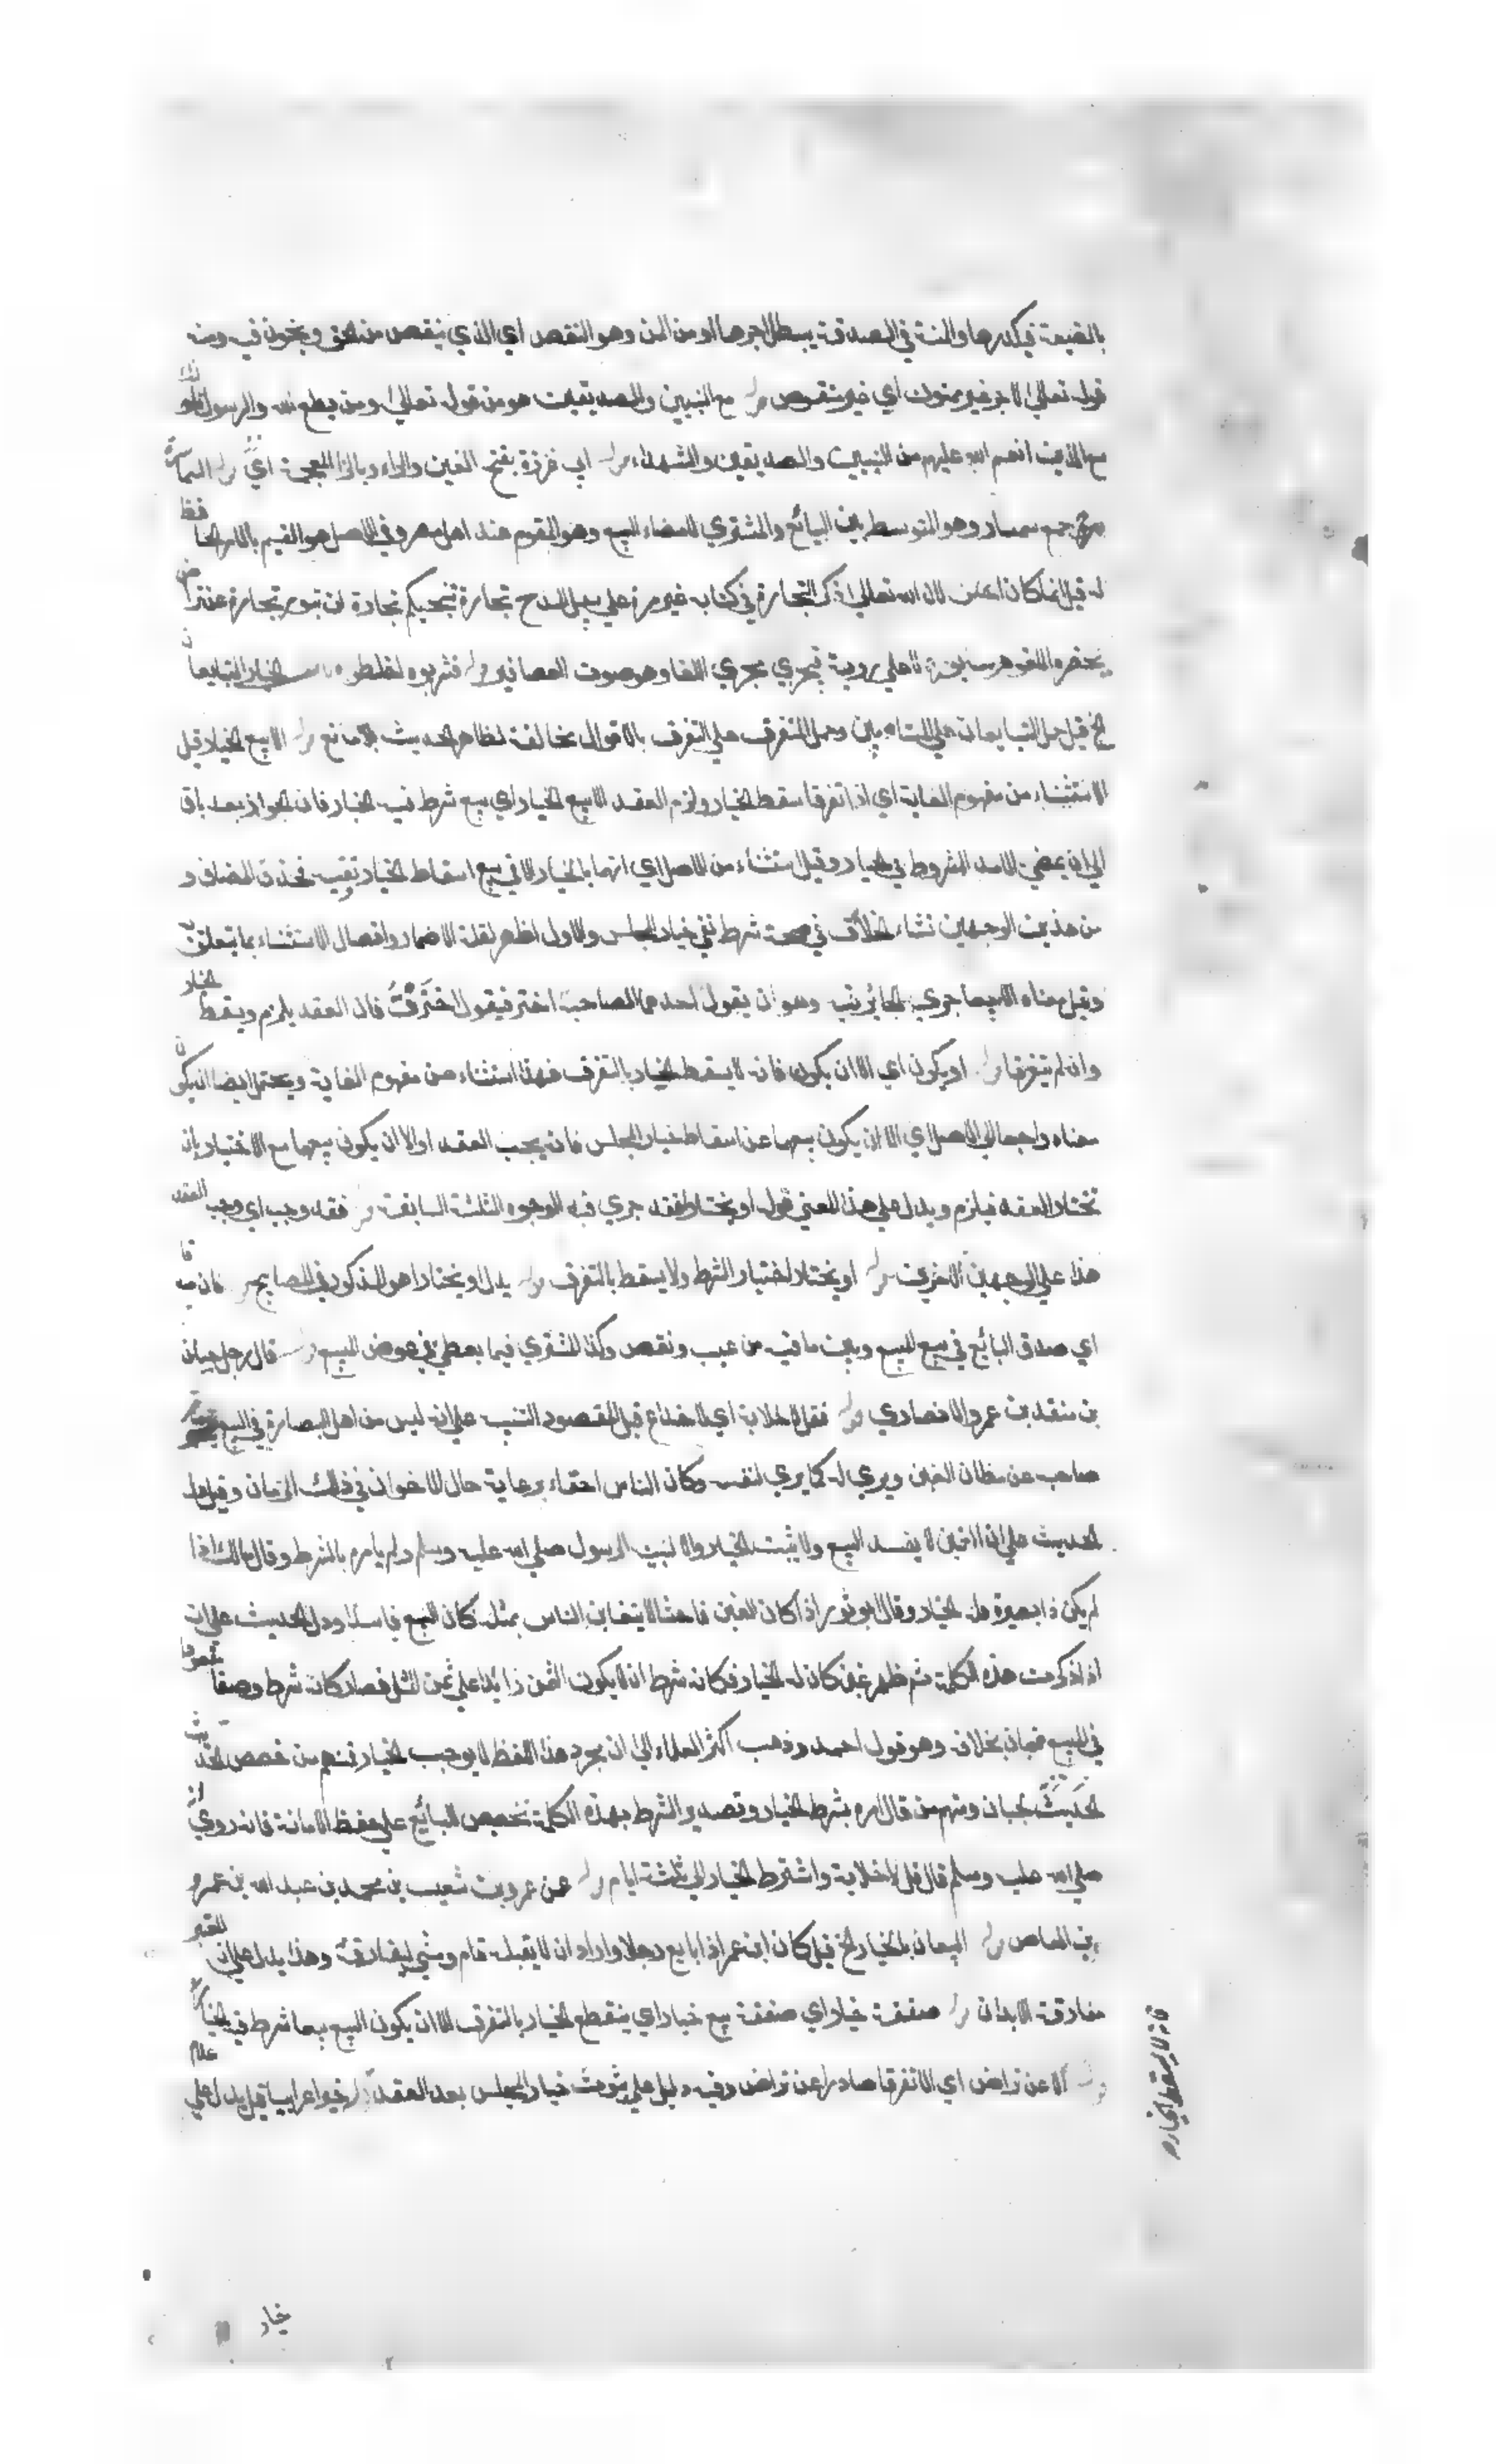 بالصنيعة فيكدرها والمنة في الصدقة يبطل اجرها او من المن وهو النقص اي الذي ينقص من الحق ويخون فيه ومنه
قوله تعالى لاجر غير ممنون اي غير منقوص قوله مع النبيين والصديقين هو من قوله تعالى ومن يطع الله والرسول فاولئك
مع الذين انعم الله عليهم من النبيين والصديقين والشهداء قوله ابي غرزة بفتح الغين والراء وبالزا المعجمة اي قوله السماسرة
جمع سمسار وهو المتوسط بين البائع والمشتري لامضاء البيع وهو المقوم عند اهل مصر وفي الاصل هو القيم بالامر الحافظ
له قيل انما كان احسن لان الله تعالى ذكر التجارة في كتابه غير مرة على سبيل المدح تجارة تنجيكم تجارة لن تبور تجارة عن تراض
يحضره اللغو هو لا على روية فيجري مجري اللغا وهو صوت العصافير قوله فشوبوه اخلطوه باب الخيار المتبايعان
الخ قيل حمل المتبايعان على المتساومين وحمل التفرق على التفرق بالاقوال مخالفة لظاهر الحديث بلا مانع قوله الا بيع الخيار قيل
الاستثناء من مفهوم الغاية اي اذا تفرقا سقط الخيار ولزم العقد الا بيع الخيار اي بيع شرط فيه الخيار فان الجواز بعد باق
الى ان يمضي الامد المشروط في الخيار وقيل استثناء من الاصل اي انهما بالخيار الا في بيع اسقاط الخيار ونفيه فحذف المضاف و
من هذين الوجهين نشاء الخلاف في صحة شرط نفي خيار المجلس والاول اظهر لقلة الاضمار واتصال الاستثناء بما يتعلق به
وقيل معناه الا بيعا جري التخاير فيه وهو ان يقول احدهما لصاحبه اختر فيقول اخترت فان العقد يلزم ويسقط الخيار
وان لم يتفرقا قوله او يكون اي الا ان يكون فانه لا يسقط الخيار بالتفرق فهذا استثناء من مفهوم الغاية ويحتمل ايضا ان يكون
معناه راجعا الى الاصل اي الا ان يكون بيعهما عن اسقاط خيار المجلس فانه يجب العقد او الا ان يكون بيعهما مع الاختيار بان
تختار العقد فيلزم ويدل على هذا المعنى قوله او يختار فقد جري فيه الوجوه الثلثة السابقة قوله فقد وجب اي وجب العقد
هذا على الوجهين الاخرين قوله او يختارا ختيار الشرط ولا يسقط بالتفرق قوله بدل او يختارا هو المذكور في المصابيح قوله فان صدقا
اي صدق البائع في بيع المبيع وبين ما فيه من عيب ونقص وكذا المشتري فيما يعطي في عوض المبيع قوله قال رجل حبان
بن منقذ بن عمرو الانصاري قوله فقل لا خلابة اي لا خداع قيل المقصود التنبيه على انه ليس من اهل البصارة في البيع
صاحبه عن مظان الغبن ويري له كما يري لنفسه وكان الناس احقاء برعاية حال الاخوان في ذلك الزمان وقيل
الحديث على ان الغبن لا يفسد البيع ولا يثبت الخيار والا لبينه الرسول صلى الله عليه وسلم ولم يامره بالشرط وقال مالك اذا
لم يكن ذا بصيرة فله الخيار وقال ابو ثور اذا كان الغبن فاحشا لا يتغابن الناس بمثله كان البيع فاسدا ودل الحديث على ان
اذا ذكرت هذه الكلمة ثم ظهر غبن كان له الخيار فكانه شرط ان لا يكون الثمن زائدا على ثمن المثل فصار كانه شرط وصفا مقصودا
في المبيع فبان بخلافه وهو قول احمد وذهب اكثر العلماء الى ان مجرد هذا اللفظ لا يوجب الخيار فمنهم من خصص الحديث
الحديث بحبان ومنهم من قال امره بشرط الخيار وتصدير الشرط بهذه الكلمة تخصيص البائع على حفظ الامانة فانه روي انه
صلى الله عليه وسلم قال قل لا خلابة واشترط الخيار الى ثلثة ايام قوله عن عمرو بن شعيب بن محمد بن عبد الله بن عمرو
بن العاص قوله البيعان بالخيار الخ قيل كان ابن عمر اذا بايع رجلا واراد ان لا يقيله قام ومشي ليفارقه وهذا يدل على ان المعتبر
مفارقة الابدان قوله صفقة خيار اي صفقة بيع خيار اي ينقطع الخيار بالتفرق الا ان يكون البيع بيعا شرط فيه الخيار
قوله الا عن تراض اي الا تفرقا صادرا عن تراض وفيه دليل على ثبوت خيار المجلس بعد العقد قوله خير اعرابيا قيل يدل على
فانه لا يسقط الخيار
خيار